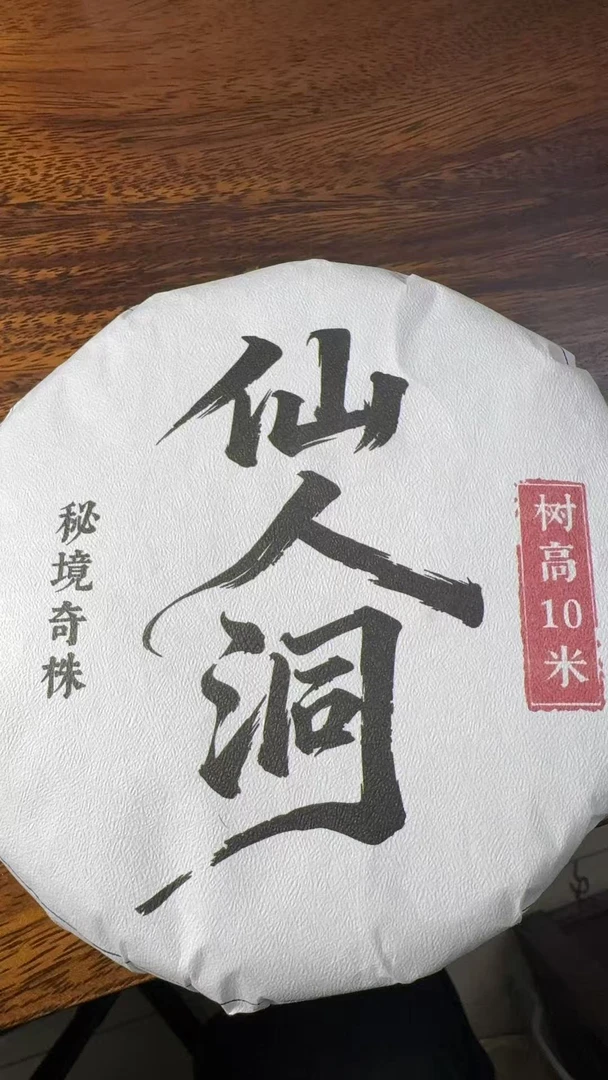 仙人洞
秘境奇株
树高10米